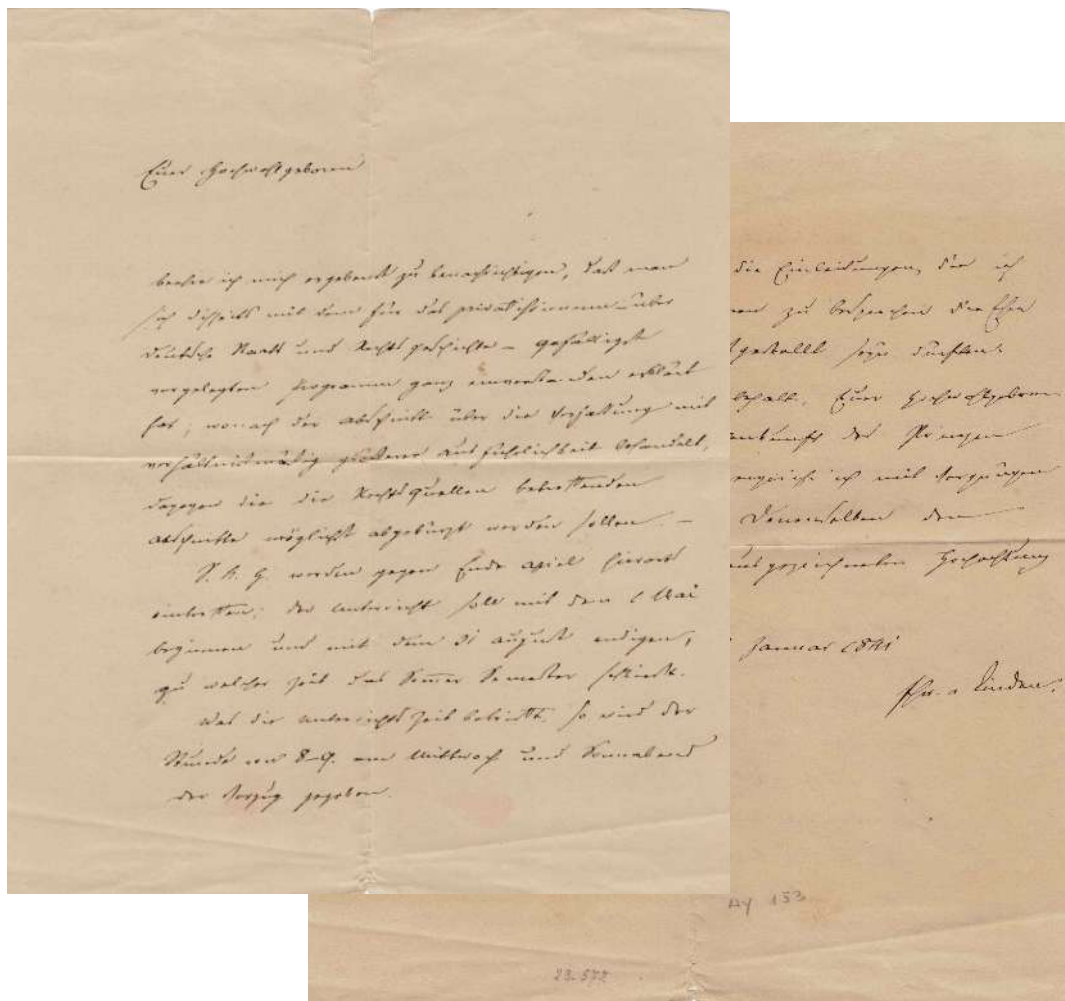 Euer Hochwohlgeboren
beehre ich mich ergebenst zu benachrichtigen, daß man
sich disseits mit dem für das privatissimum über
deutsche Staats und Rechtsgeschichte – gefälligst
vorgelegten Programm ganz einverstanden erklärt
hat; wonach der Abschnitt über die Verfassung mit
verhältnismäßig größerer Ausführlichkeit behandelt,
dagegen die die Rechtsquellen betreffenden
Abschnitte möglichst abgekürzt werden sollen. –
S. K. H. werden gegen Ende April hierorts
eintreffen; der Unterricht soll mit dem 1 Mai
beginnen und mit dem 31 August endigen,
zu welcher Zeit das Somer Semester schließt.
Was die Unterrichtszeit betrifft, so wird der
Stunde von 8–9. am Mittwoch und Sonnabend
der Vorzug gegeben.
die Einleitungen, die ich
zu besprechen die Ehre
gestellt seyn dürften.
Euer Hochwohlgeboren
der Prinzen
ich mit Vergnügen
Denenselben den
ausgezeichneten Hochachtung
Januar 1841
Fhr. v Linden.
AY 153
23.572